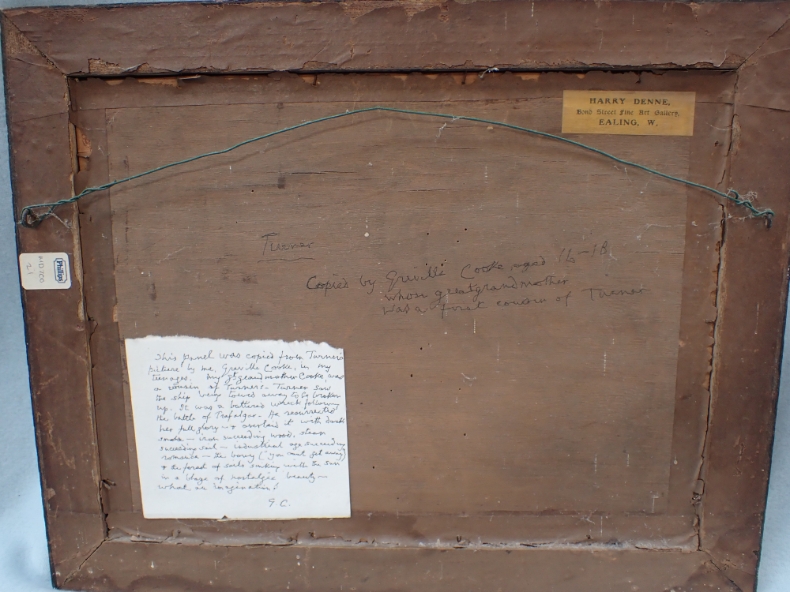 HARRY DENNE,
Bond Street Fine Art Gallery,
EALING, W.
Turner
Copied by Greville Cooke, aged 16-18
whose greatgrandmother
was a first cousin of Turner
Phillips
This panel was copied from Turner's
picture by me, Greville Cooke, in my
teenages. My gt grandmother Cooke, was
a cousin of Turner's. Turner saw
the ship being towed away to be broken
up. It was a battered wreck following
the battle of Trafalgar. He resurrected
her full glory - & overlaid it with
smoke - iron succeeding wood, steam
succeeding sail - industrial age succeeding
romance - the buoy ("you can't get away")
& the forest of sails sinking with the sun
in a blaze of nostalgic beauty -
what an imagination!
G.C.